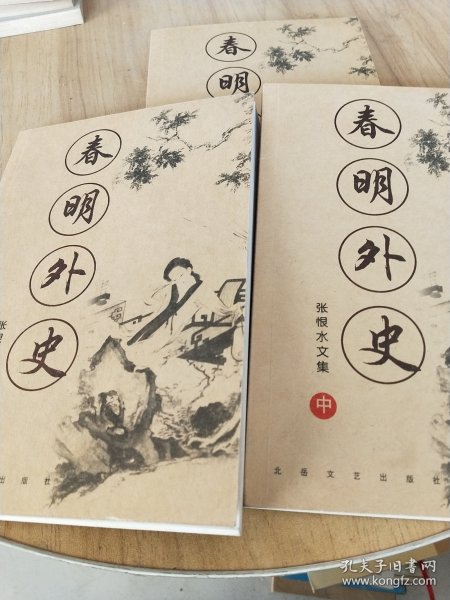 春明
春明外史
张
出版社
春明外史
张恨水文集
中
北岳文艺出版社
孔夫子旧书网
www.kongfz.com